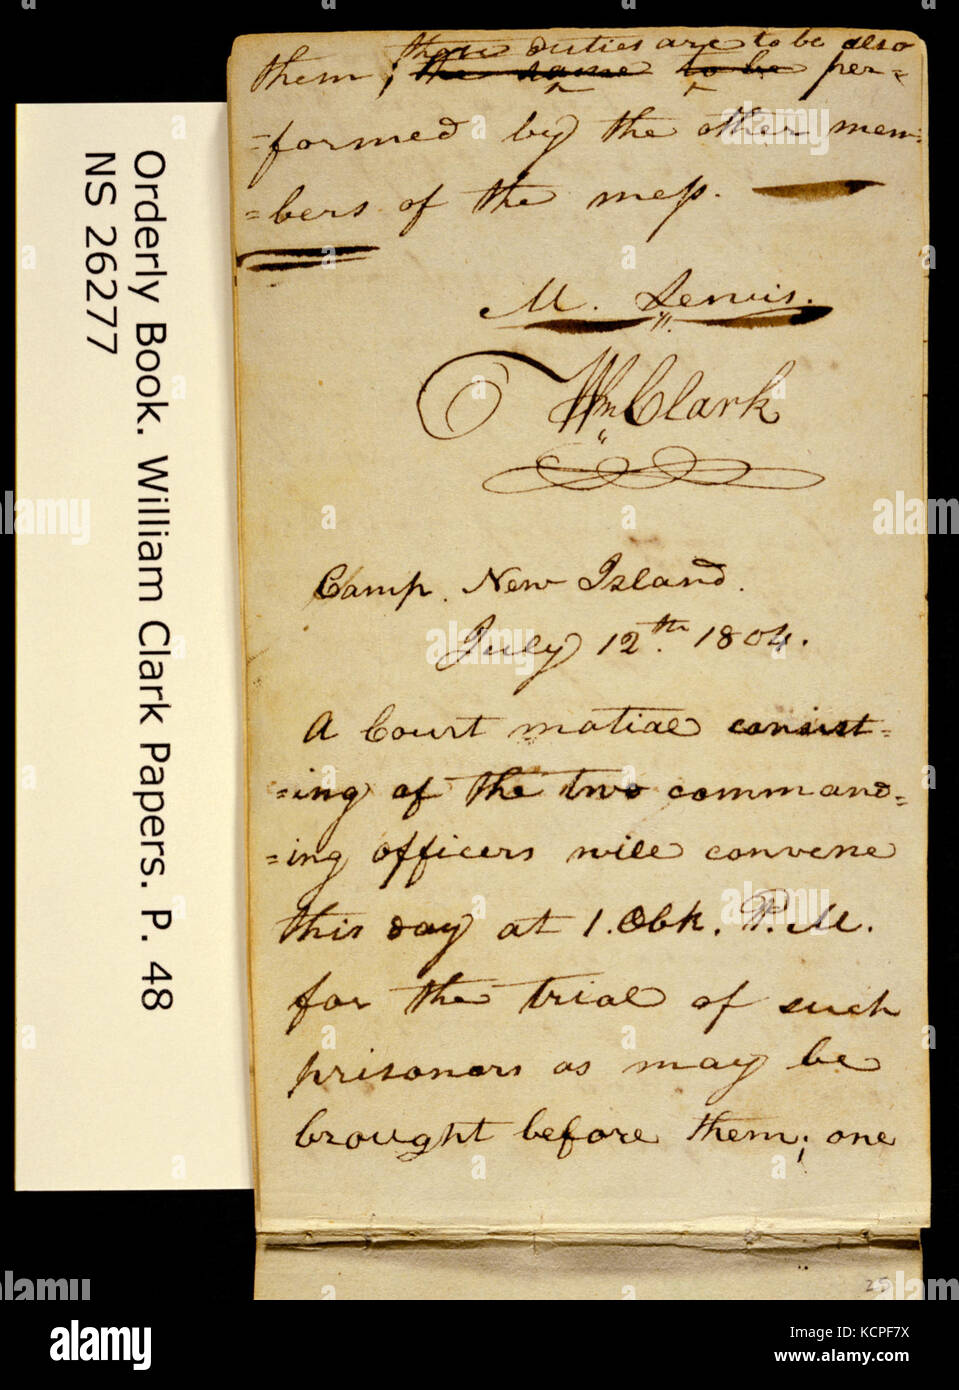 those duties are to be also
them; the same to be per-
=formed by the other mem=
=bers of the mess.
M. Lewis.
Wm Clark
Camp. New Island.
July 12th. 1804.
A Court matial consist=
=ing of the two command=
=ing officers will convene
this day at 1. OCk. P.M.
for the trial of such
prisoners as may be
brought before them; one
25
Orderly Book. William Clark Papers. P. 48
NS 26277
alamy
Image ID: KCPF7X
www.alamy.com